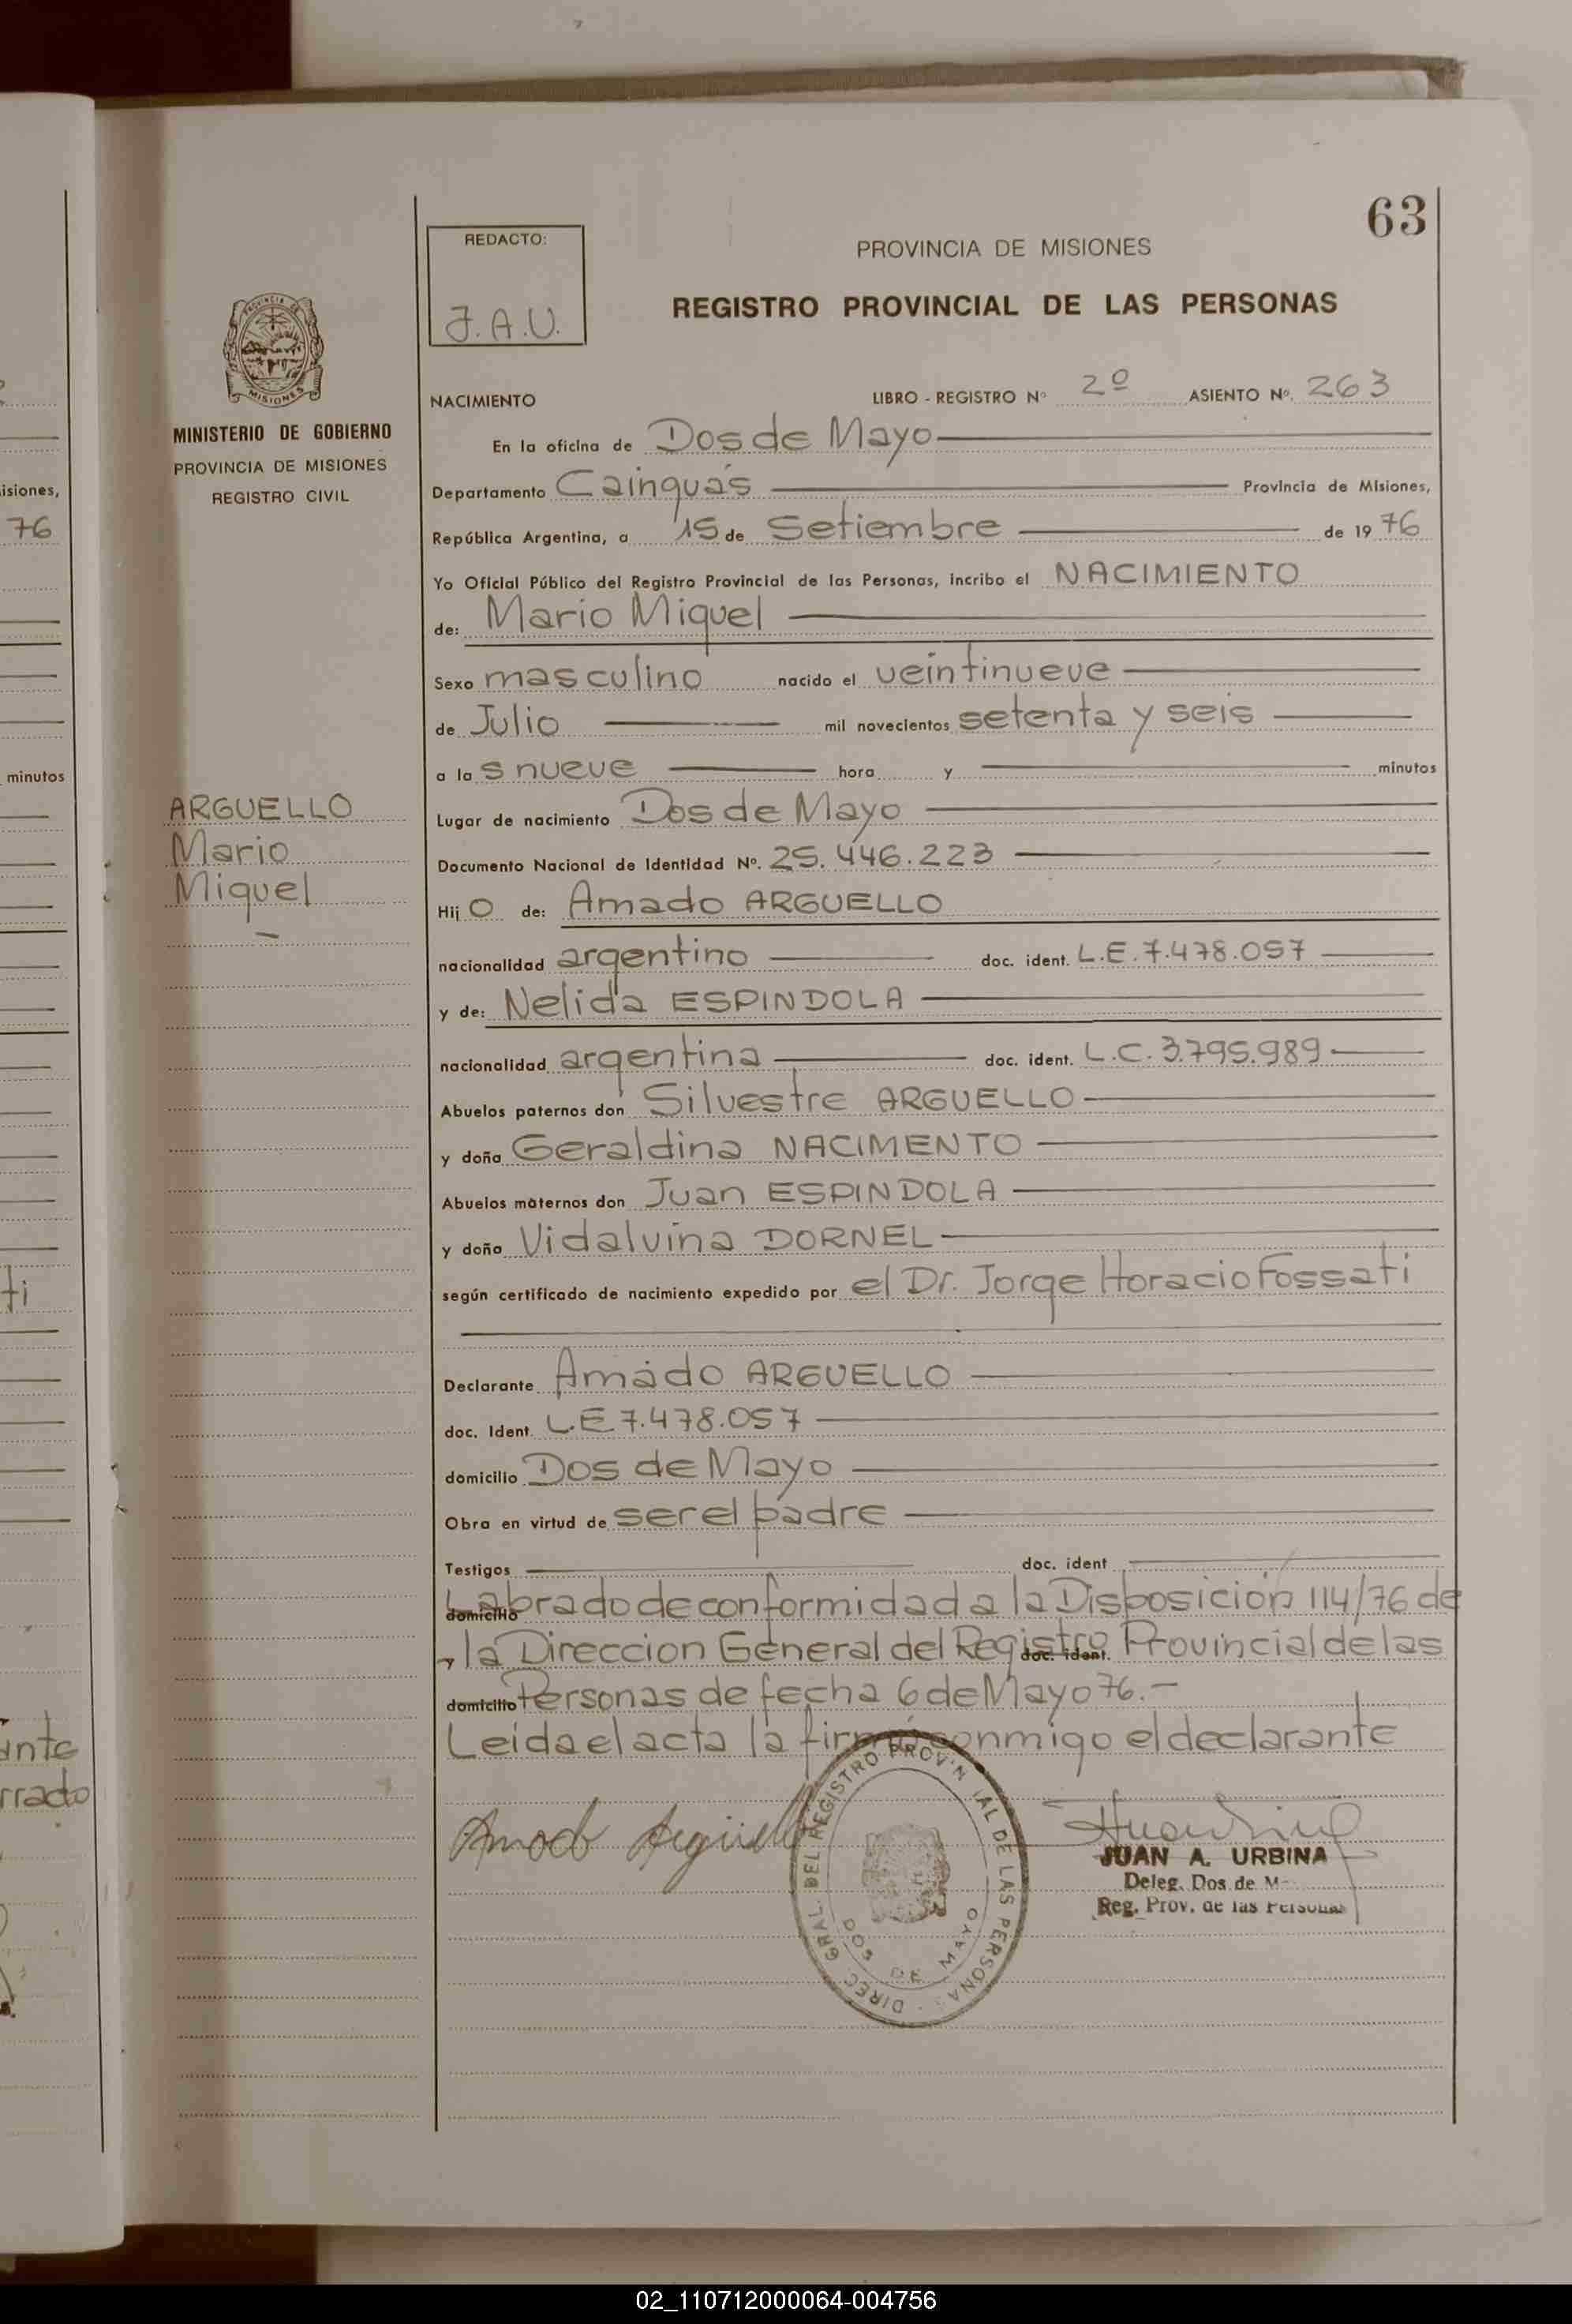 63
REDACTO:
J.A.U.
PROVINCIA DE MISIONES
REGISTRO PROVINCIAL DE LAS PERSONAS
PROVINCIA DE MISIONES
MINISTERIO DE GOBIERNO
PROVINCIA DE MISIONES
REGISTRO CIVIL
NACIMIENTO LIBRO - REGISTRO Nº 2º ASIENTO Nº. 263
En la oficina de Dos de Mayo
Departamento Cainguás Provincia de Misiones,
República Argentina, a 15 de Setiembre de 1976
Yo Oficial Público del Registro Provincial de las Personas, incribo el NACIMIENTO
de: Mario Miguel
Sexo masculino nacido el veintinueve
de Julio mil novecientos setenta y seis
a las nueve hora y minutos
Lugar de nacimiento Dos de Mayo
Documento Nacional de Identidad Nº. 25.446.223
Hijo de: Amado ARGUELLO
nacionalidad argentino doc. ident. L.E. 7.478.057
y de: Nelida ESPINDOLA
nacionalidad argentina doc. ident. L.C. 3.795.989
Abuelos paternos don Silvestre ARGUELLO
y doña Geraldina NACIMENTO
Abuelos maternos don Juan ESPINDOLA
y doña Vidalvina DORNEL
según certificado de nacimiento expedido por el Dr. Jorge Horacio Fossati
Declarante Amado ARGUELLO
doc. Ident. L.E 7.478.057
domicilio Dos de Mayo
Obra en virtud de ser el padre
Testigos doc. ident
domicilio Labrado de conformidad a la Disposición 114/76 de
y la Direccion General del Registro doc. ident. Provincial de las
domicilio Personas de fecha 6 de Mayo 76.-
Leida el acta la firmó conmigo el declarante
Amado Arguello
JUAN A. URBINA
Deleg. Dos de M
Reg. Prov. de las Personas
DIREC. GRAL. DEL REGISTRO PROVIN IAL DE LAS PERSONAS
DOS DE MAYO
ARGUELLO
Mario
Miguel
isiones,
76
minutos
ti
ante
rrado
02_110712000064-004756